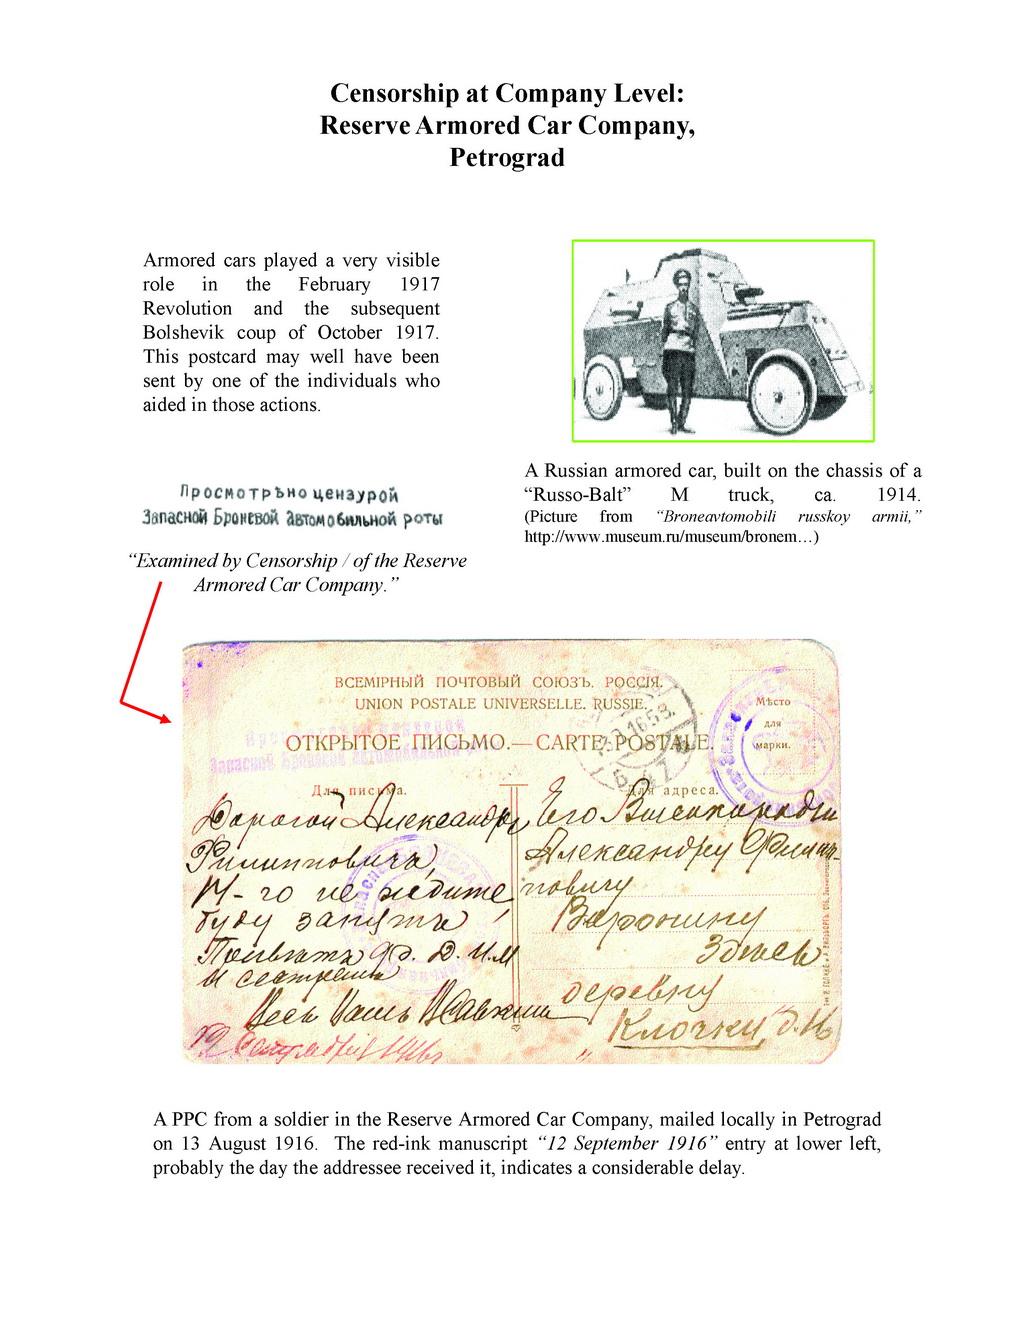 Censorship at Company Level:
Reserve Armored Car Company,
Petrograd
Armored cars played a very visible
role in the February 1917
Revolution and the subsequent
Bolshevik coup of October 1917.
This postcard may well have been
sent by one of the individuals who
aided in those actions.
A Russian armored car, built on the chassis of a
“Russo-Balt” M truck, ca. 1914.
(Picture from “Broneavtomobili russkoy armii,”
http://www.museum.ru/museum/bronem…)
Просмотрѣно цензурой
Запасной Броневой автомобильной роты
“Examined by Censorship / of the Reserve
Armored Car Company.”
ВСЕМІРНЫЙ ПОЧТОВЫЙ СОЮЗЪ. РОССІЯ.
UNION POSTALE UNIVERSELLE. RUSSIE.
ОТКРЫТОЕ ПИСЬМО.—CARTE POSTALE.
Мѣсто
для
марки.
Просмотрѣно цензурой
Запасной Броневой автомобильной
Для письма.
Для адреса.
Дорогой Александръ
Филипповичъ,
14-го не ждите
буду занятъ!
Привѣтъ
и сестрицы
Весь Вашъ
Его Высокородію
Александру Филип-
повичу
Воронину
Здѣсь
деревну
Клочки
12 Сентября 1916г
A PPC from a soldier in the Reserve Armored Car Company, mailed locally in Petrograd
on 13 August 1916. The red-ink manuscript “12 September 1916” entry at lower left,
probably the day the addressee received it, indicates a considerable delay.